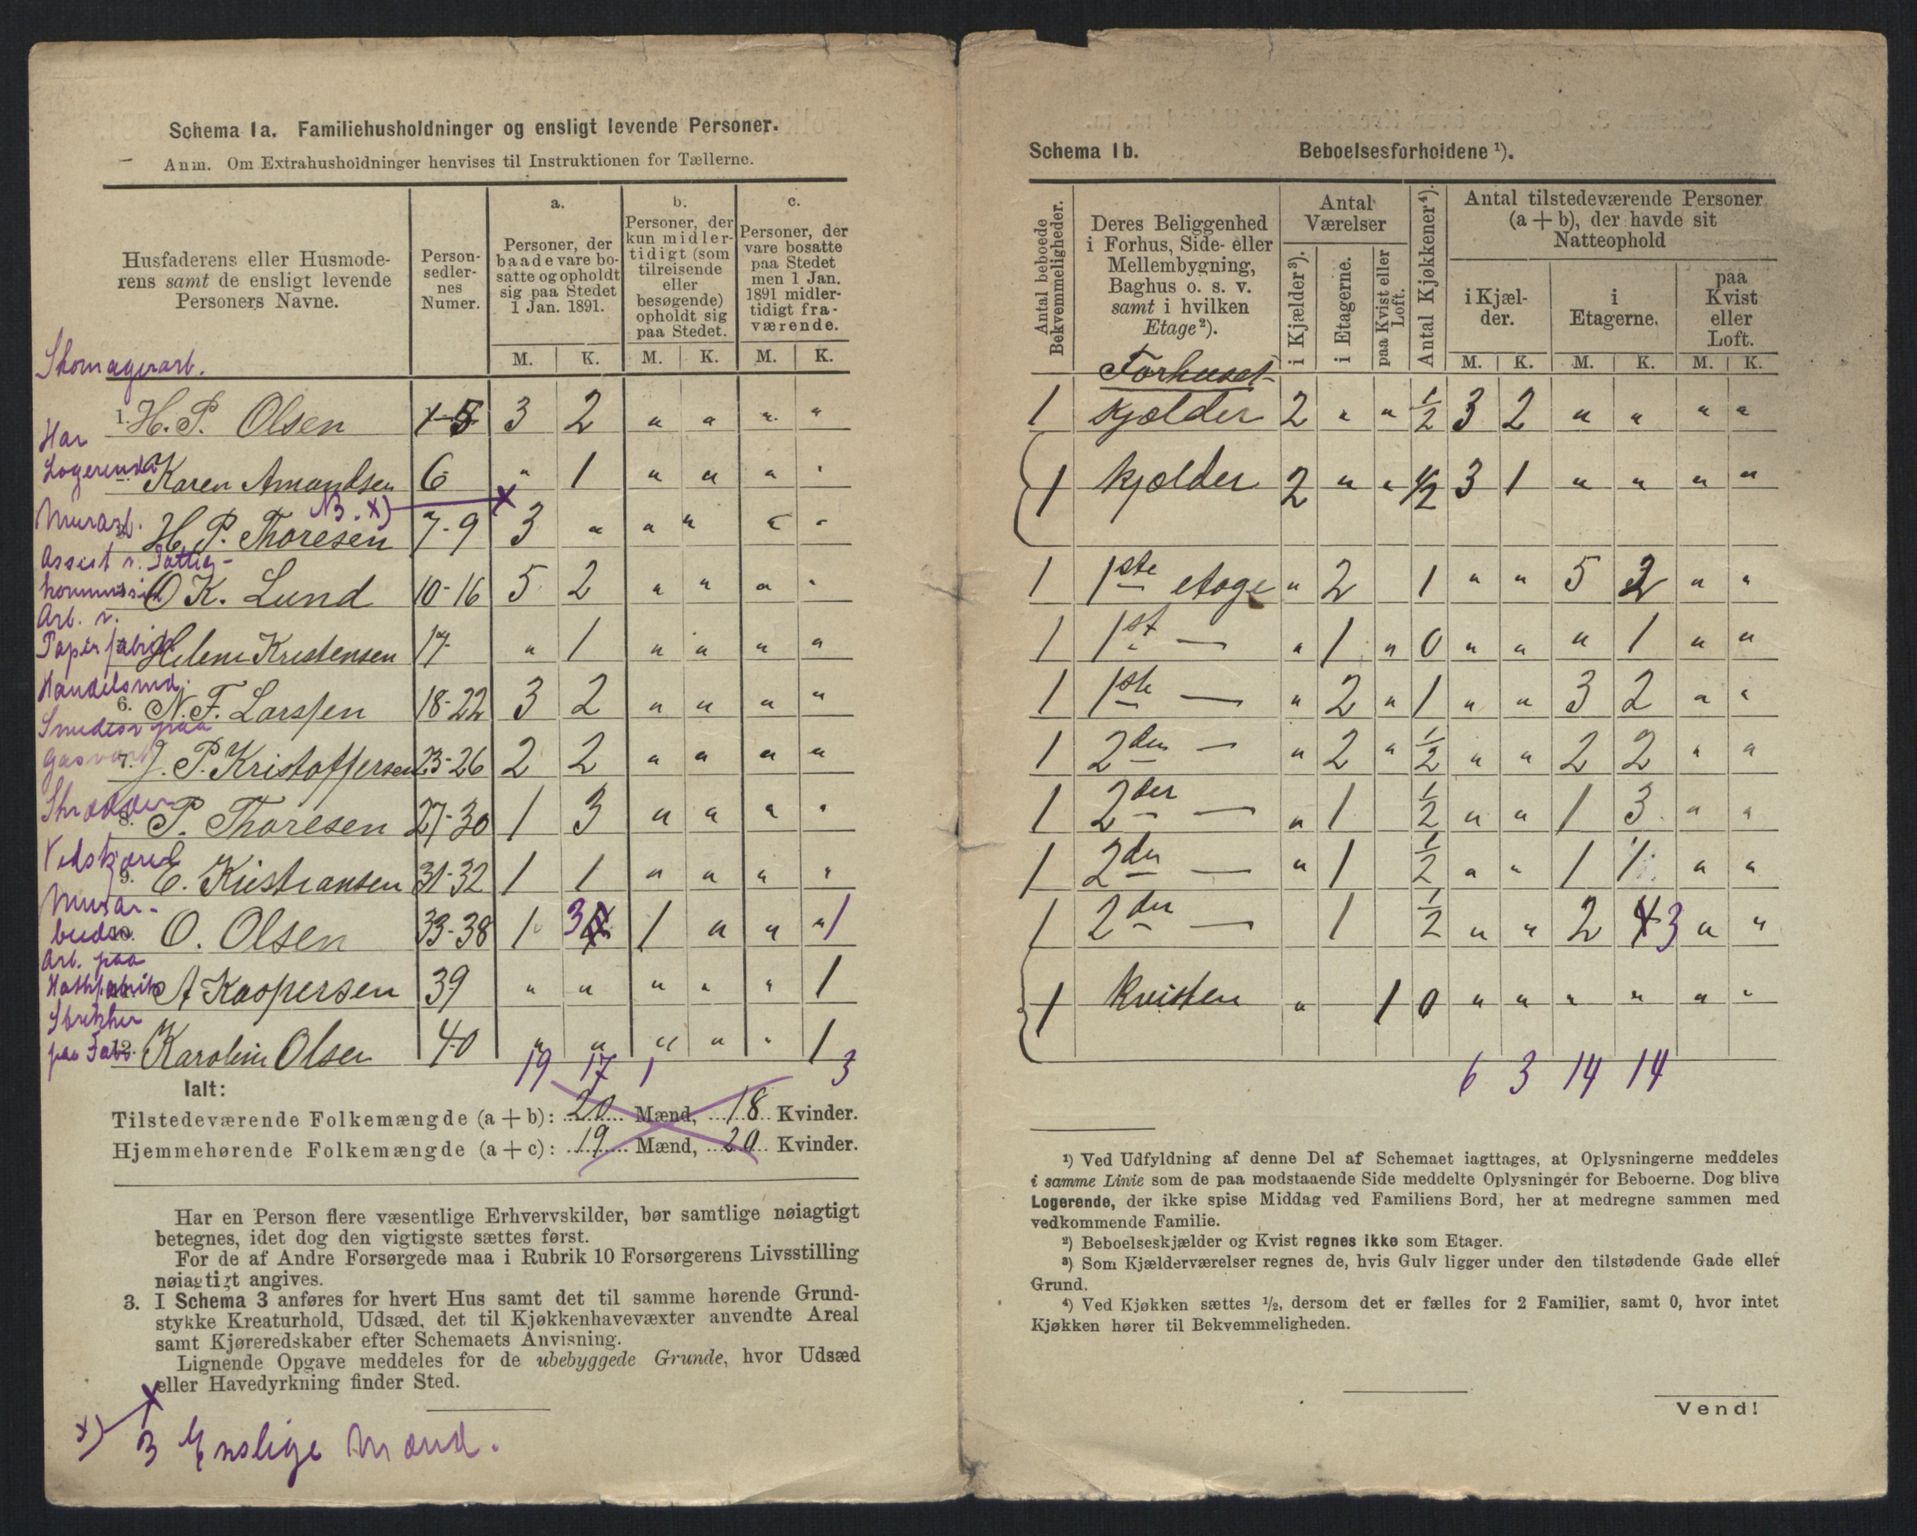 Schema 1a. Familiehusholdninger og ensligt levende Personer.
Anm. Om Extrahusholdninger henvises til Instruktionen for Tællerne.
Husfaderens eller Husmode-
rens samt de ensligt levende
Personers Navne.
Person-
sedler-
nes
Numer.
a.
Personer, der
baade vare bo-
satte og opholdt
sig paa Stedet
1 Jan. 1891.
b.
Personer, der
kun midler-
tidigt (som
tilreisende
eller
besøgende)
opholdt sig
paa Stedet.
c.
Personer, der
vare bosatte
paa Stedet
men 1 Jan.
1891 midler-
tidigt fra-
værende.
M. K. M. K. M. K.
Skomagerarb.
1. H. P. Olsen 1-5 3 2 " " " "
Har
Logerende
Karen Amundsen 6 " 1 " " " "
N3. x) x
Murarb.
H. P. Thoresen 7-9 3 " " " " "
Assist v. Fattig-
kommission
O K. Lund 10-16 5 2 " " " "
Arb. v.
Papirfabrik
Helene Kristensen 17 " 1 " " " "
Handelsmd.
6. N. F. Larssen 18-22 3 2 " " " "
Smedesv paa
Gasværk
7. J. P. Kristoffersen 23-26 2 2 " " " "
Skrædder
8. P. Thoresen 27-30 1 3 " " " "
Vedskjærer
9. E. Kristiansen 31-32 1 1 " " " "
Murar-
beider
10. O. Olsen 33-38 1 3 4 1 " " " 1
Arb. paa
A Kaspersen 39 " " " " " 1
Strikker
paa Fabr.
12. Karoline Olsen 40 " " " " " 1
19 17 1 3
Ialt:
Tilstedeværende Folkemængde (a + b): 20 Mænd, 18 Kvinder.
Hjemmehørende Folkemængde (a + c): 19 Mænd, 20 Kvinder.
Har en Person flere væsentlige Erhvervskilder, bør samtlige nøiagtigt
betegnes, idet dog den vigtigste sættes først.
For de af Andre Forsørgede maa i Rubrik 10 Forsørgerens Livsstilling
nøiagtigt angives.
3. I Schema 3 anføres for hvert Hus samt det til samme hørende Grund-
stykke Kreaturhold, Udsæd, det til Kjøkkenhavevæxter anvendte Areal
samt Kjøreredskaber efter Schemaets Anvisning.
Lignende Opgave meddeles for de ubebyggede Grunde, hvor Udsæd
eller Havedyrkning finder Sted.
x) x
3 Enslige Mænd.
Schema 1b. Beboelsesforholdene ¹).
Antal beboede
Bekvemmeligheder.
Deres Beliggenhed
i Forhus, Side- eller
Mellembygning,
Baghus o. s. v.
samt i hvilken
Etage²).
Antal
Værelser
i Kjælder³).
i Etagerne.
paa Kvist eller
Loft.
Antal Kjøkkener⁴).
Antal tilstedeværende Personer
(a + b), der havde sit
Natteophold
i Kjæl-
der.
i
Etagerne.
paa
Kvist
eller
Loft.
M. K. M. K. M. K.
Forhuset
1 Kjælder 2 " " 1/2 3 2 " " " "
1 Kjælder 2 " " 1/2 3 1 " " " "
1 1ste etage " 2 1 " " 5 2 " "
1 1st — " 1 " 0 " " " 1 " "
1 1ste — " 2 " 1 " " 3 2 " "
1 2den — " 2 " 1/2 " " 2 2 " "
1 2den — " 1 1/2 " " 1 3 " "
1 2den — " 1 1/2 " " 1 1 " "
1 2den — 1 1/2 " " 2 4 3 " "
1 Kvisten " 1 0 " " " " " "
6 3 14 14
¹) Ved Udfyldning af denne Del af Schemaet iagttages, at Oplysningerne meddeles
i samme Linie som de paa modstaaende Side meddelte Oplysninger for Beboerne. Dog blive
Logerende, der ikke spise Middag ved Familiens Bord, her at medregne sammen med
vedkommende Familie.
²) Beboelseskjælder og Kvist regnes ikke som Etager.
³) Som Kjælderværelser regnes de, hvis Gulv ligger under den tilstødende Gade eller
Grund.
⁴) Ved Kjøkken sættes ½, dersom det er fælles for 2 Familier, samt 0, hvor intet
Kjøkken hører til Bekvemmeligheden.
Vend!